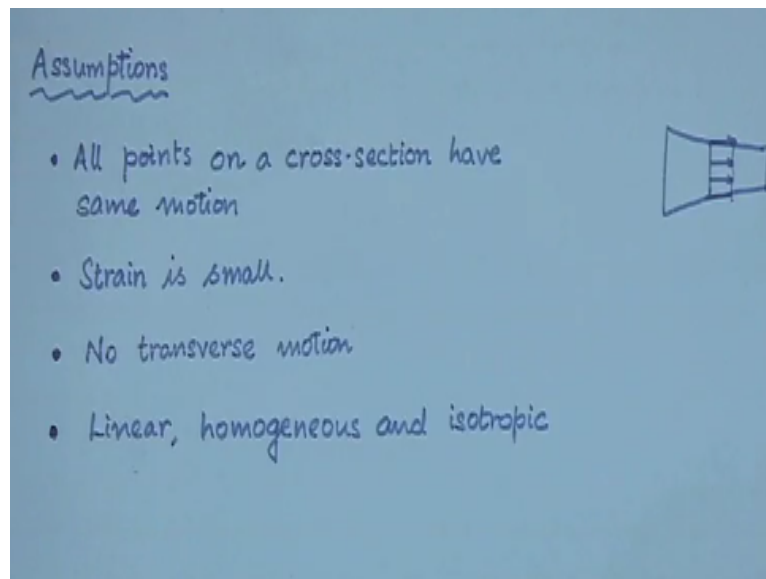 Assumptions
• All points on a cross-section have
same motion
• Strain is small.
• No transverse motion
• Linear, homogeneous and isotropic